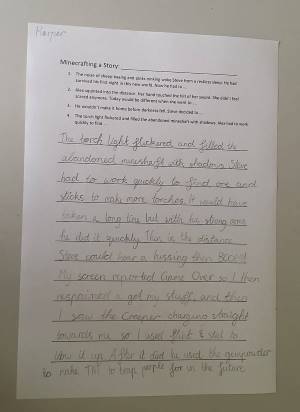 Harper
Minecrafting a Story:
1. The noise of sheep baaing and pickaxes woke Steve from a restless sleep. He had
survived his first night in this new world. Now he had to ...
2. Alex squinted into the distance. Her hand touched the hilt of her sword. She didn't feel
scared anymore. Today would be different when she went to ...
3. He wouldn't make it home before darkness fell. Steve decided to ...
4. The torch light flickered and filled the abandoned mineshaft with shadows. Alex had to work
quickly to find ...
The torch light flickered and filled the
abandoned mineshaft with shadows. Steve
had to work quickly to find ore and
sticks to make more torches. It would have
taken a long time but with his strong arms
he did it quickly. Then in the distance
Steve could hear a hissing then BOOM!
My screen reported Game Over so I then
respawned & got my stuff, and then
I saw the Creeper charging straight
towards me so I used flint & steel to
blow it up. After it died he used the gunpowder
to make TNT to trap people for in the future